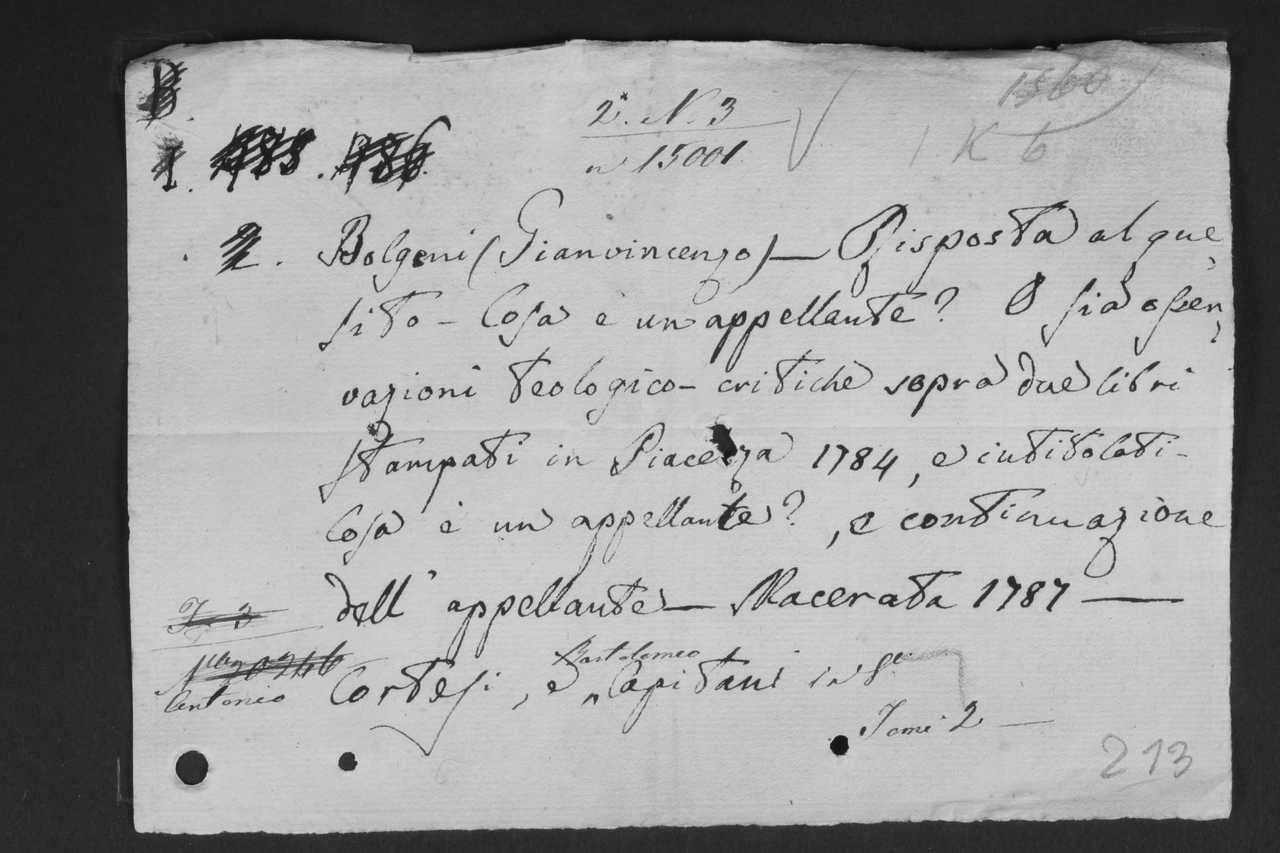 2.ª N. 3
n 15001
1560
1 K 6
2. Bolgeni (Gianvincenzo) — Risposta al que
sito - Cosa è un appellante? O sia osser,
vazioni teologico-critiche sopra due libri
stampati in Piacenza 1784, e intitolati -
Cosa è un appellante?, e continuazione
dell' appellante — Macerata 1787 —
T 3
Antonio Cortesi, e Bartolomeo Capitani in 8.º
Tomi 2 —
213